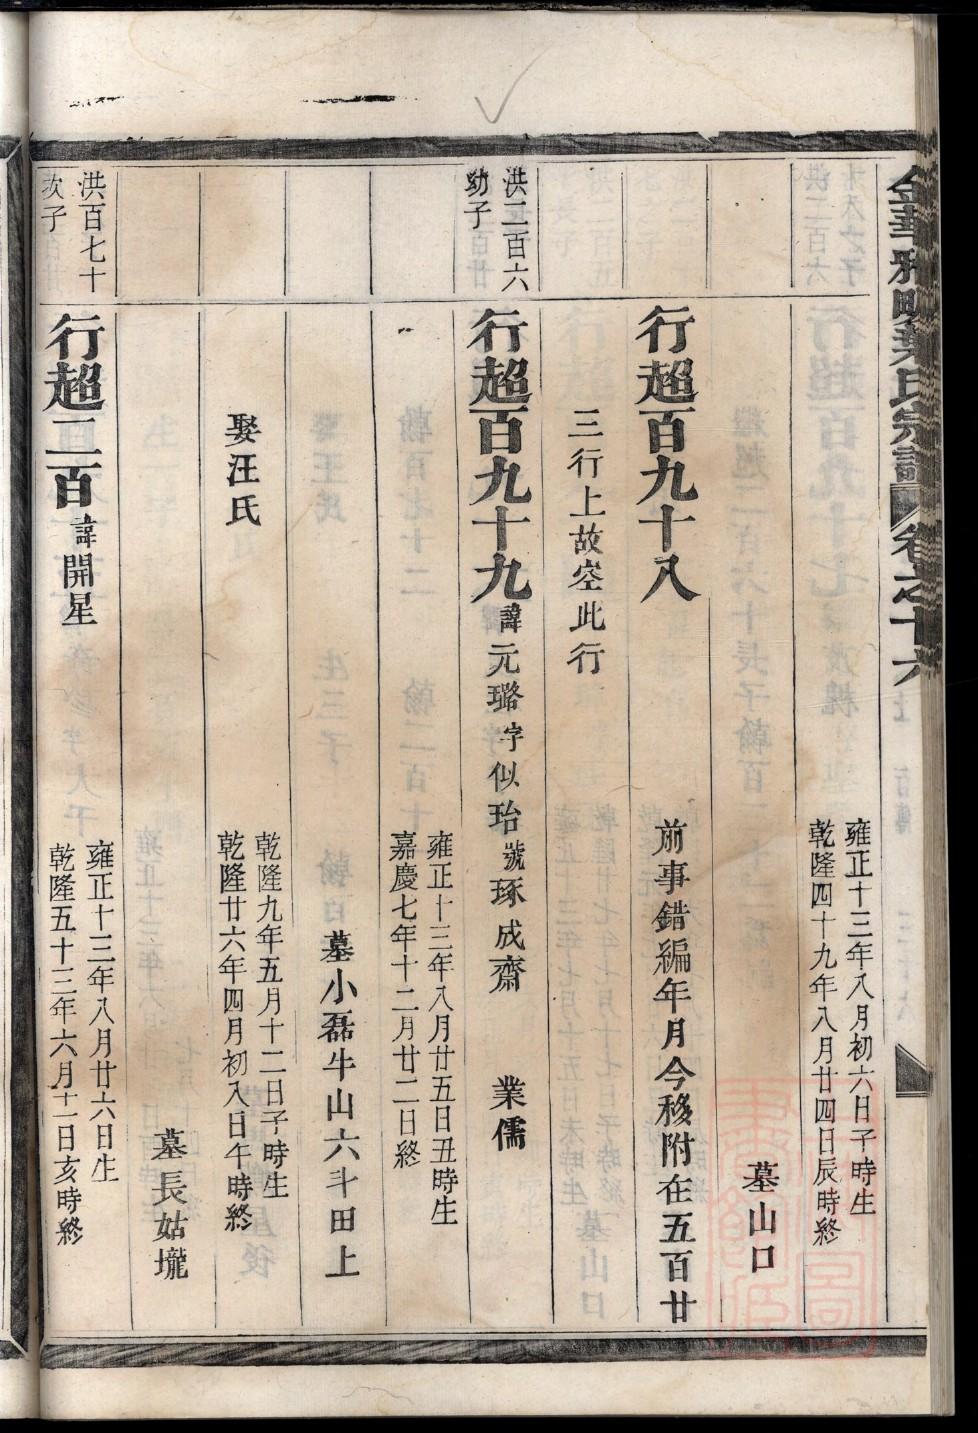 金華雅畈葉氏宗譜 卷之十六
雍正十三年八月初六日子時生
乾隆四十九年八月廿四日辰時終
墓山口
行超百九十八 前事錯編年月今移附在五百廿
三行上故空此行
洪二百六
幼子
行超百九十九 諱元璐字似珆號琢成齋 業儒
雍正十三年八月廿五日丑時生
嘉慶七年十二月廿二日終
墓小磊牛山六斗田上
乾隆九年五月十二日子時生
娶汪氏
乾隆廿六年四月初八日午時終
墓長姑壠
洪百七十
次子
行超二百 諱開星
雍正十三年八月廿六日生
乾隆五十三年六月十一日亥時終